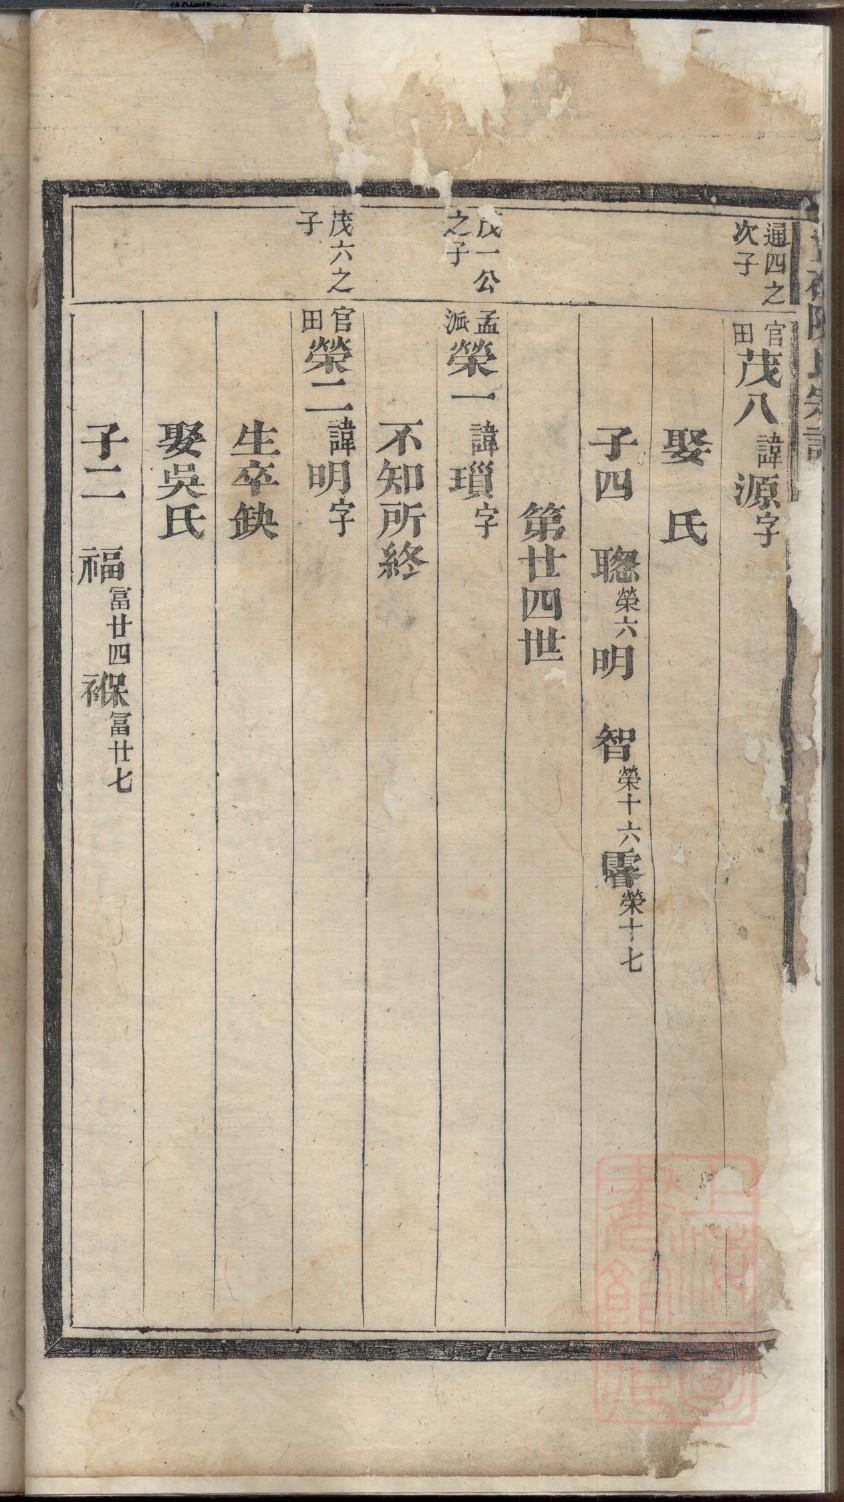 陳氏宗譜
通四之次子
官田茂八諱源字
娶 氏
子四 聰榮六明 智榮十六睿榮十七
第廿四世
茂一公之子
孟派榮一諱瑣字
不知所終
茂六之子
官田榮二諱明字
生卒缺
娶吳氏
子二 福富廿四褓富廿七
上海圖書館藏